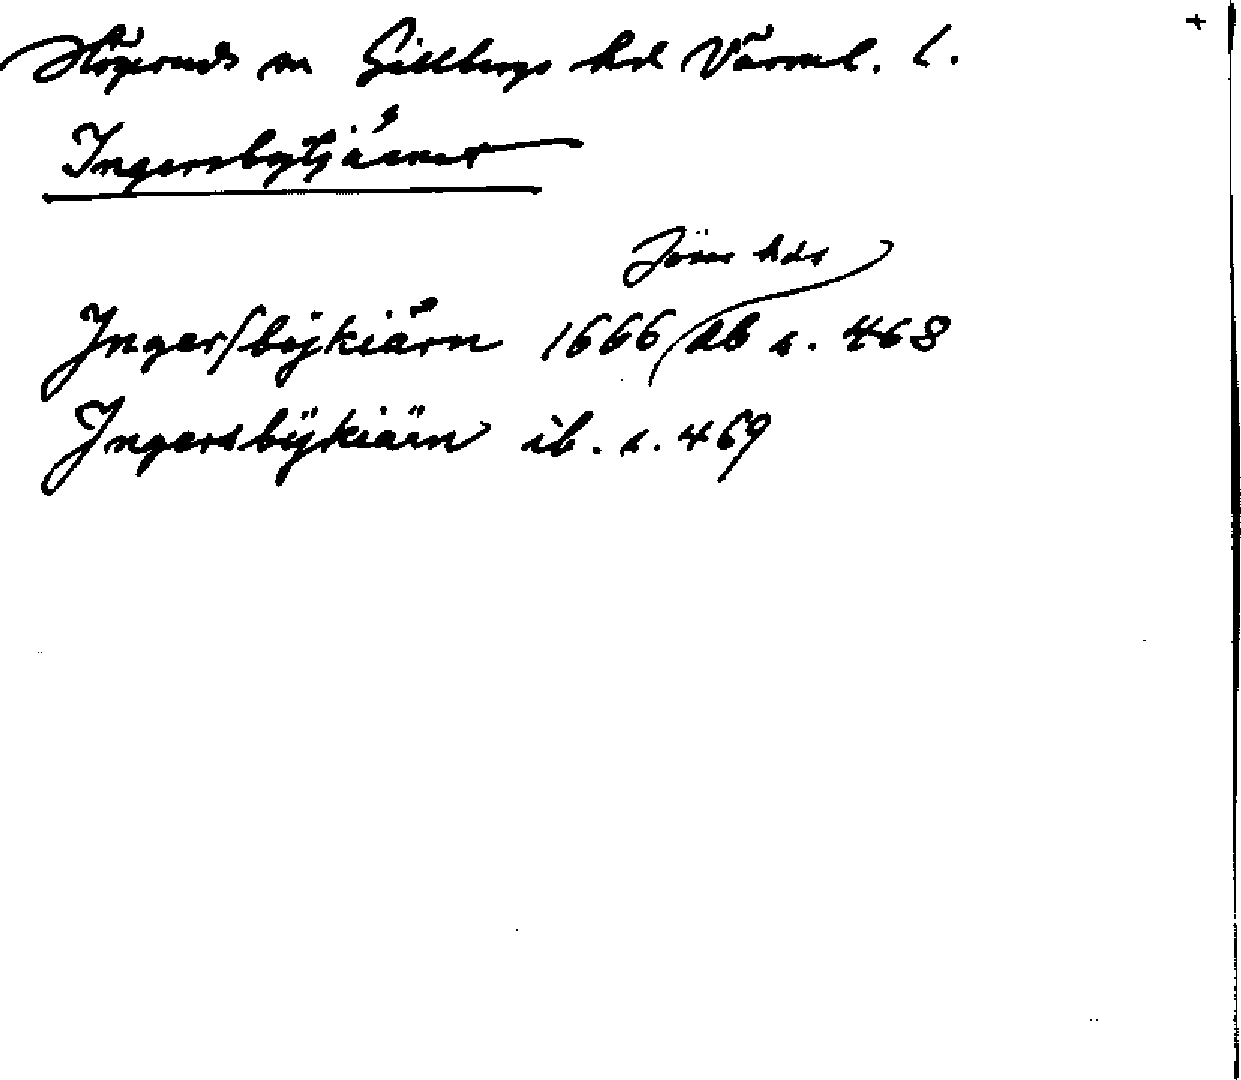 Högeruds sn Gillbergs hd Värml. l.
+
Ingersbytjärnet
Jösse hds
Ingersbÿkiärn 1666 db s. 468
Ingersbÿkiärn ib. s. 469